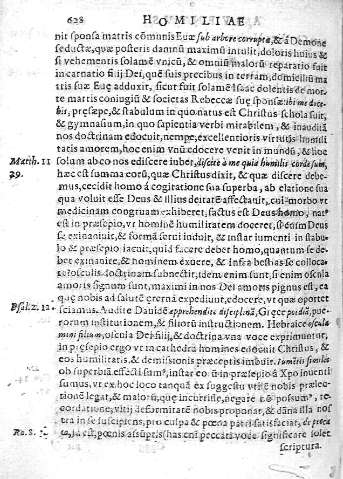 628 HOMILIAE
nit sponsa matris cōmunis Euæ sub arbore corrupta, & á Dæmone
seductæ, quæ posteris damnū maximū intulit, doloris huius &
si vehementis solamē vnicū, & omniū malorū reparatio fuit
incarnatio filij Dei, quē suis precibus in terram, domicilīū ma
tris suæ Euę adduxit, sicut fuit solamē Isaac dolentis de mor
te matris coniugiū & societas Rebeccæ suę sponsæ: ibi me doce
bit, præsepe, & stabulum in quo natus est Christus schola fuit,
& gymnasium, in quo sapientia verbi mirabilem, & inauditā
nos doctrinam edocuit, nempe, excellentioris virtutis humili
tatis amorem, hoc enim vnū edocere venit in mundū, & hoc
Matth. 11 solum ab eo nos ediscere iubet, discite à me quia humilis corde sum,
29. hæc est summa eorū, quæ Christus dixit, & quæ discere debe-
mus, cecidit homo á cogitatione sua superba, ab elatione sua
qua voluit esse Deus & illius deitatē affectauit, cui morbo vt
medicinam congruam exhiberet, factus est Deus homo, nat
est in præsepio, vt hominē humilitatem doceret, si enim Deus
se exinaniuit, & formā serui induit, & instar iumenti in stabu-
lo & præsepio iacuit, quid facere debet homo, quantum se de-
bet exinanire, & hominem exuere, & infra bestias se colloca-
re: osculis doctrinam subnectit, idem enim sunt, si enim oscula
amoris signum sunt, maximi in nos Dei amoris pignus est, ea
quę nobis ad salutē æternā expediunt, edocere, vt quæ oportet
Psal. 2. 12. sciamus. Audite Dauidē apprehendite disciplinā, Gręce pediā, pue-
rorum institutionem, & filiorū instructionem. Hebraice oscula
mini filium, oscula Dei filij, & doctrina vna voce exprimuntur,
in præsepio ergo vt in cathedra homines edocuit Christus, &
eos humilitatis, & demissionis præceptis imbuit. iumētis similes
ob superbiā effecti sumus, instar eorū in præsepio à Xpo inuenti
sumus, vt ex hoc loco tanquā ex suggestu vtilē nobis prælec-
tionē legat, & malorū, quę incurrisse, negare nō possum9, re-
cordatione, vitij deformitatē nobis proponat, & dāna illa nos
tra in se suscipiens, pro culpa & pœna patri satisfaciat, de pecca
Ro. 8. 3. to, id est, pœnis assūptis (has eni peccati voce significare solet
scriptura.